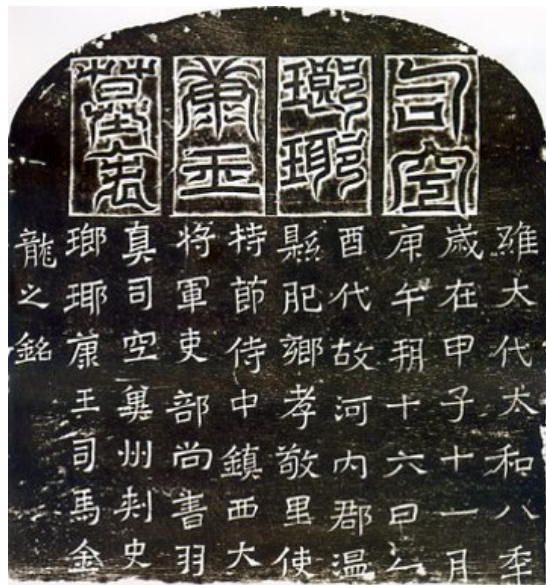 司空
瑯琊
康王
墓表
維大代太和八秊
歲在甲子十一月
庚午朔十六日乙
酉代故河内郡温
縣肥鄉孝敬里使
持節侍中鎮西大
將軍吏部尚書羽
真司空冀州刺史
瑯琊康王司馬金
龍之銘